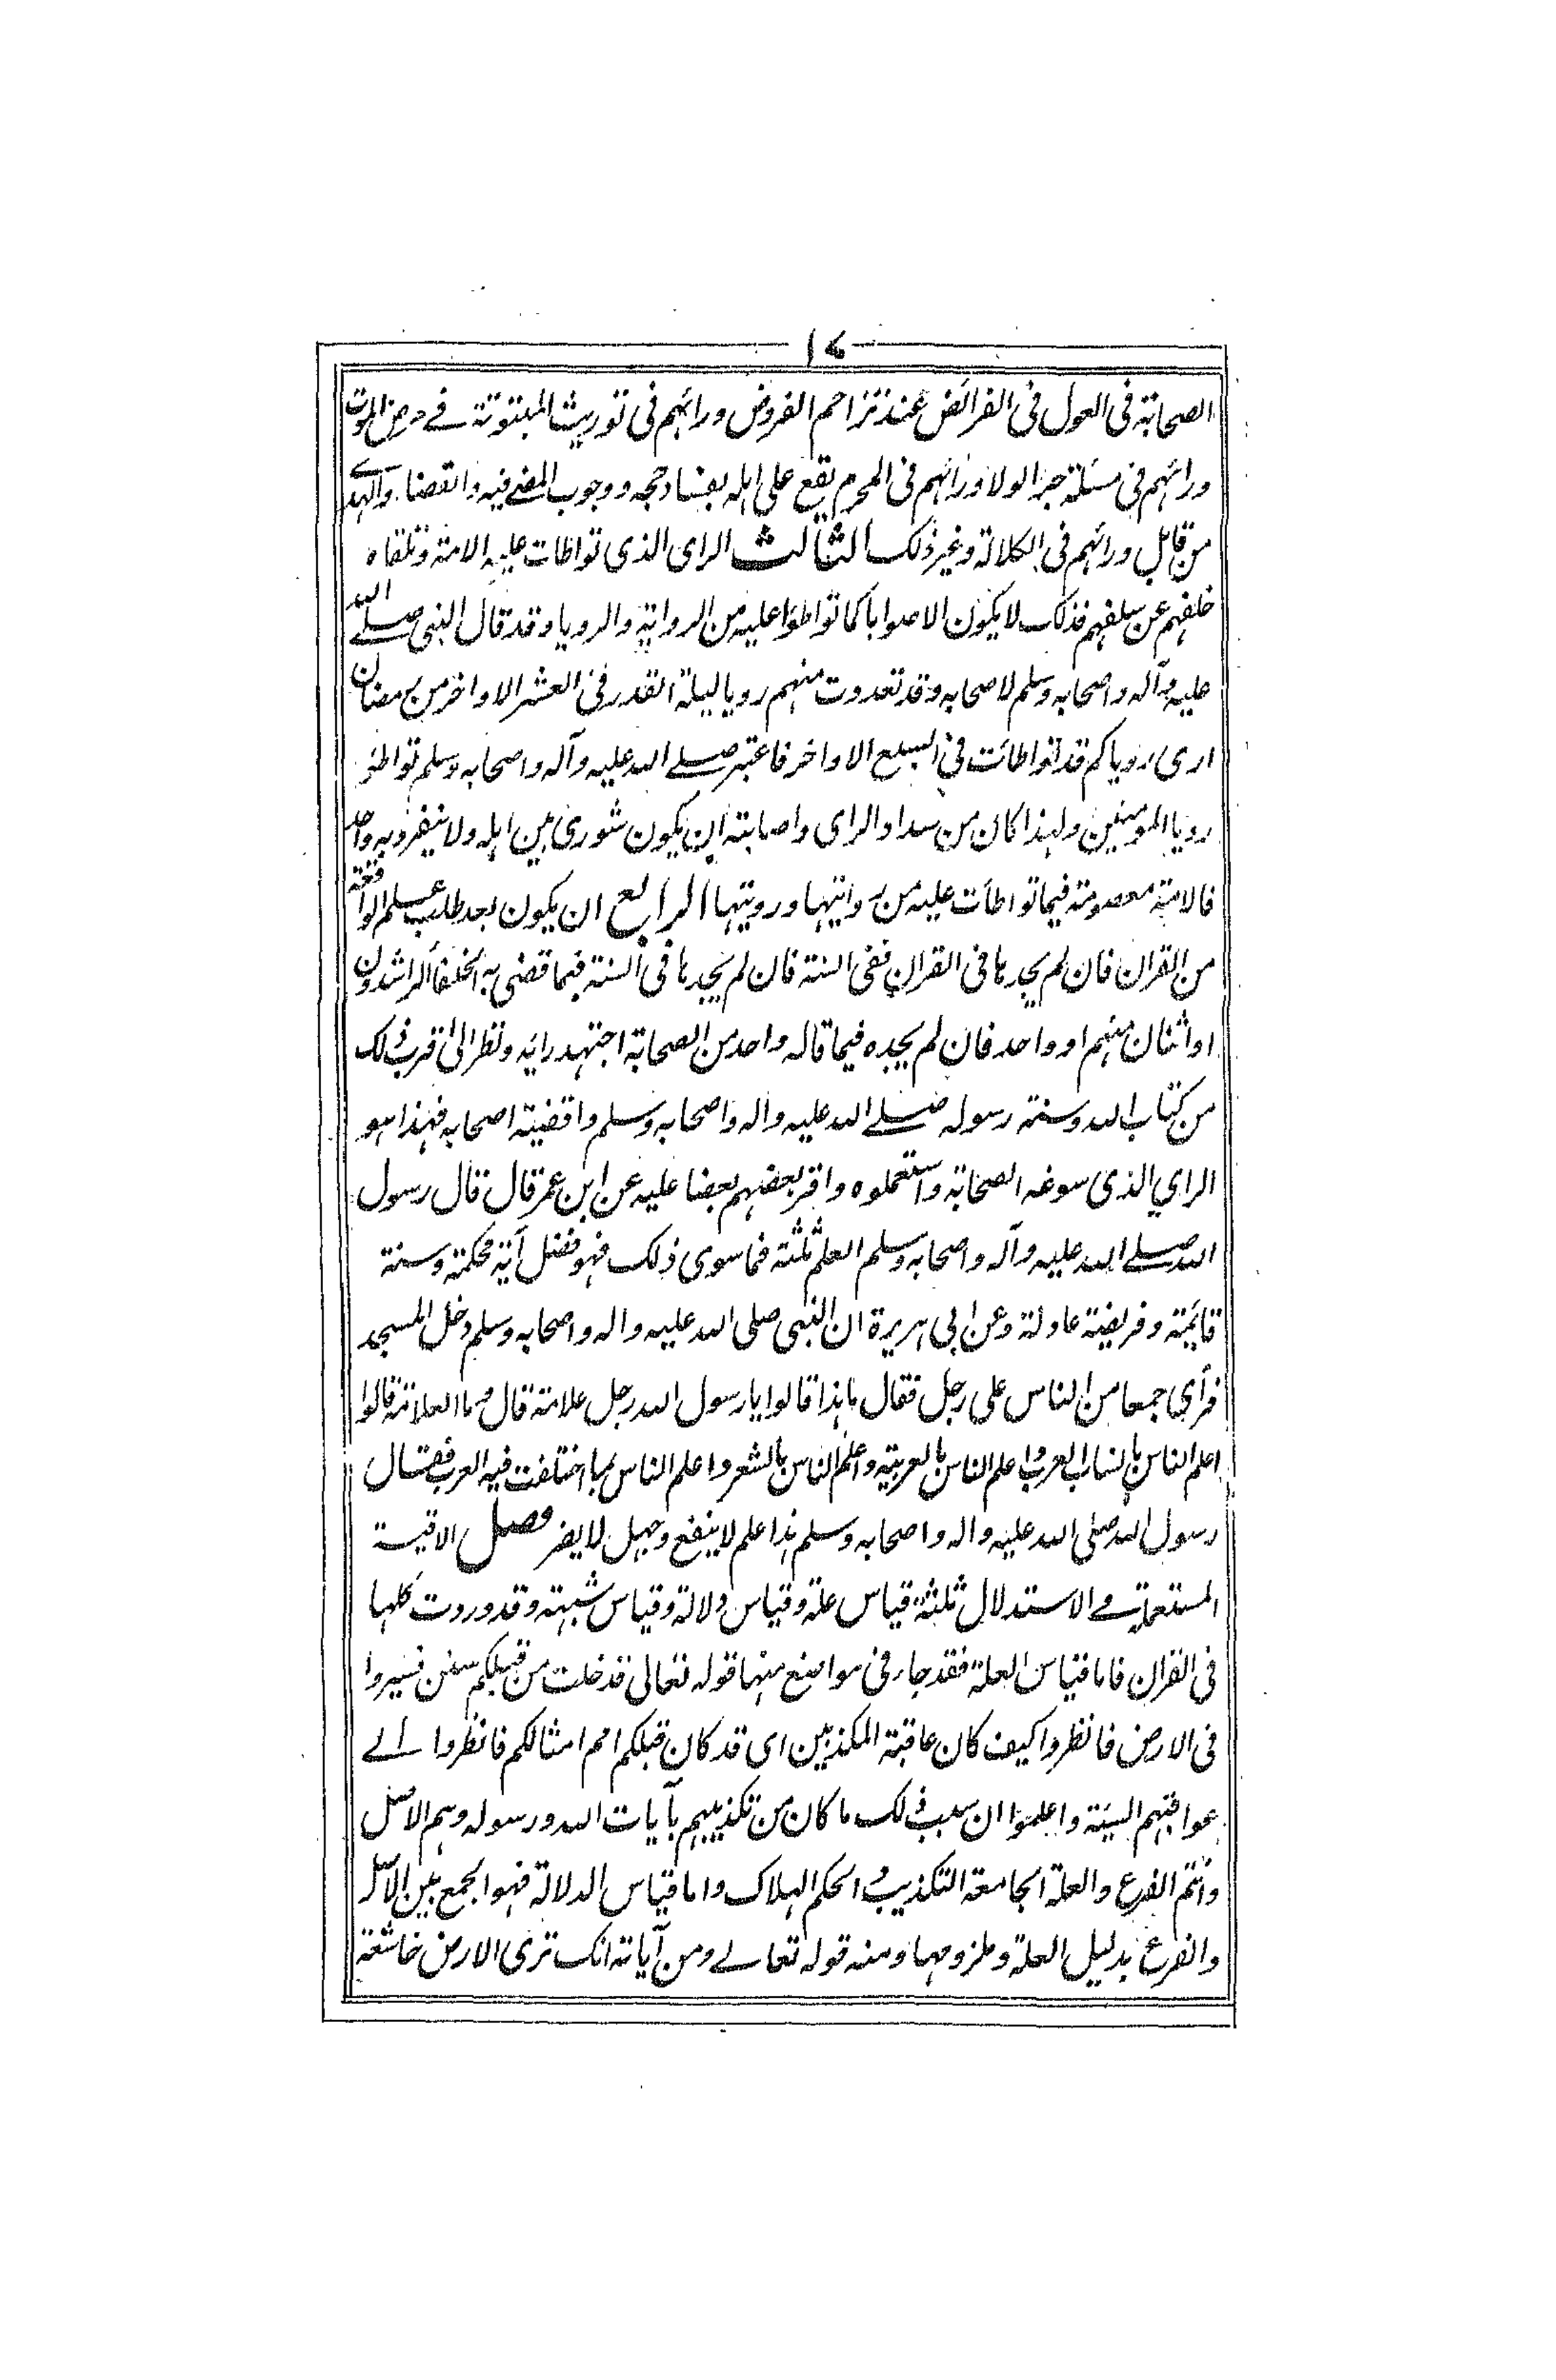 ١٤
الصحابة فى العول فى الفرائض عند تزاحم الفروض ورائهم فى توريث المبتوتة فے مرض الموت
ورائهم فى مسئلة جر الولاء ورائهم فى المحرم يقع على اهله بفساد حجه ووجوب المضے فيه والقضاء والهدے
من قابل ورائهم فى الكلالة وغير ذلك الثالث الراى الذى تواطأت عليه الامة وتلقاه
خلفهم عن سلفهم فذلك لا يكون الا صوابا كما تواطؤا عليه من الرواية والرويا وقد قال النبى صلے الله
عليه وآله واصحابه وسلم لاصحابه وقد تعددت منهم رويا ليلة القدر فى العشر الاواخر من رمضان
ارى روياكم قد تواطأت فى السبع الاواخر فاعتبر صلے الله عليه وآله واصحابه وسلم تواطؤ
رويا المومنين ولهذا كان من سداد الراى واصابته ان يكون شورى بين اهله ولا ينفرد به واحد
فالامة معصومة فيما تواطأت عليه من روايتها ورويتها الرابع ان يكون بعد طلب علم الواقعة
من القران فان لم يجدها فى القران ففى السنة فان لم يجدها فى السنة فبما قضى به الخلفاء الراشدون
او اثنان منهم او واحد فان لم يجده فيما قاله واحد من الصحابة اجتهد رائه ونظر الى اقرب ذلك
من كتاب الله وسنة رسوله صلے الله عليه واله واصحابه وسلم واقضية اصحابه فهذا هو
الراي الذى سوغه الصحابة واستعملوه واقر بعضهم بعضا عليه عن ابن عمر قال قال رسول
الله صلے الله عليه وآله واصحابه وسلم العلم ثلثة فما سوى ذلك فهو فضل آية محكمة وسنة
قائمة وفريضة عادلة وعن ابى هريرة ان النبى صلى الله عليه واله واصحابه وسلم دخل المسجد
فرأى جمعا من الناس على رجل فقال ما هذا قالوا يا رسول الله رجل علامة قال وما العلامة قالوا
اعلم الناس بانساب العرب واعلم الناس بالعربية واعلم الناس بالشعر واعلم الناس بما اختلفت فيه العرب فقال
رسول الله صلى الله عليه واله واصحابه وسلم هذا علم لا ينفع وجهل لا يضر فصل الاقيسة
المستعملة فے الاستدلال ثلثة قياس علة وقياس دلالة وقياس شبهة وقد وردت كلها
فى القران فاما قياس العلة فقد جاء فى مواضع منها قوله تعالى قد خلت من قبلكم سنن فسيروا
فى الارض فانظروا كيف كان عاقبة المكذبين اى قد كان قبلكم امم امثالكم فانظروا الے
عواقبهم السيئة واعلموا ان سبب ذلك ما كان من تكذيبهم بآيات الله ورسوله وهم الاصل
وانتم الفرع والعلة الجامعة التكذيب والحكم الهلاك واما قياس الدلالة فهو الجمع بين الاصل
والفرع بدليل العلة وملزومها ومنه قوله تعالے ومن آياته انك ترى الارض خاشعة